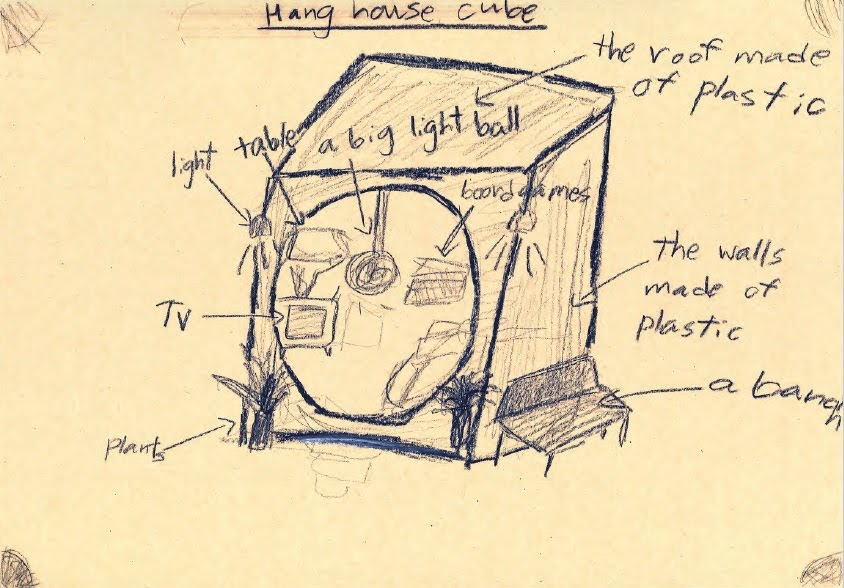 Hang house cube
the roof made
of plastic
light
table
a big light ball
board games
the walls
made of
plastic
TV
a bangh
Plants